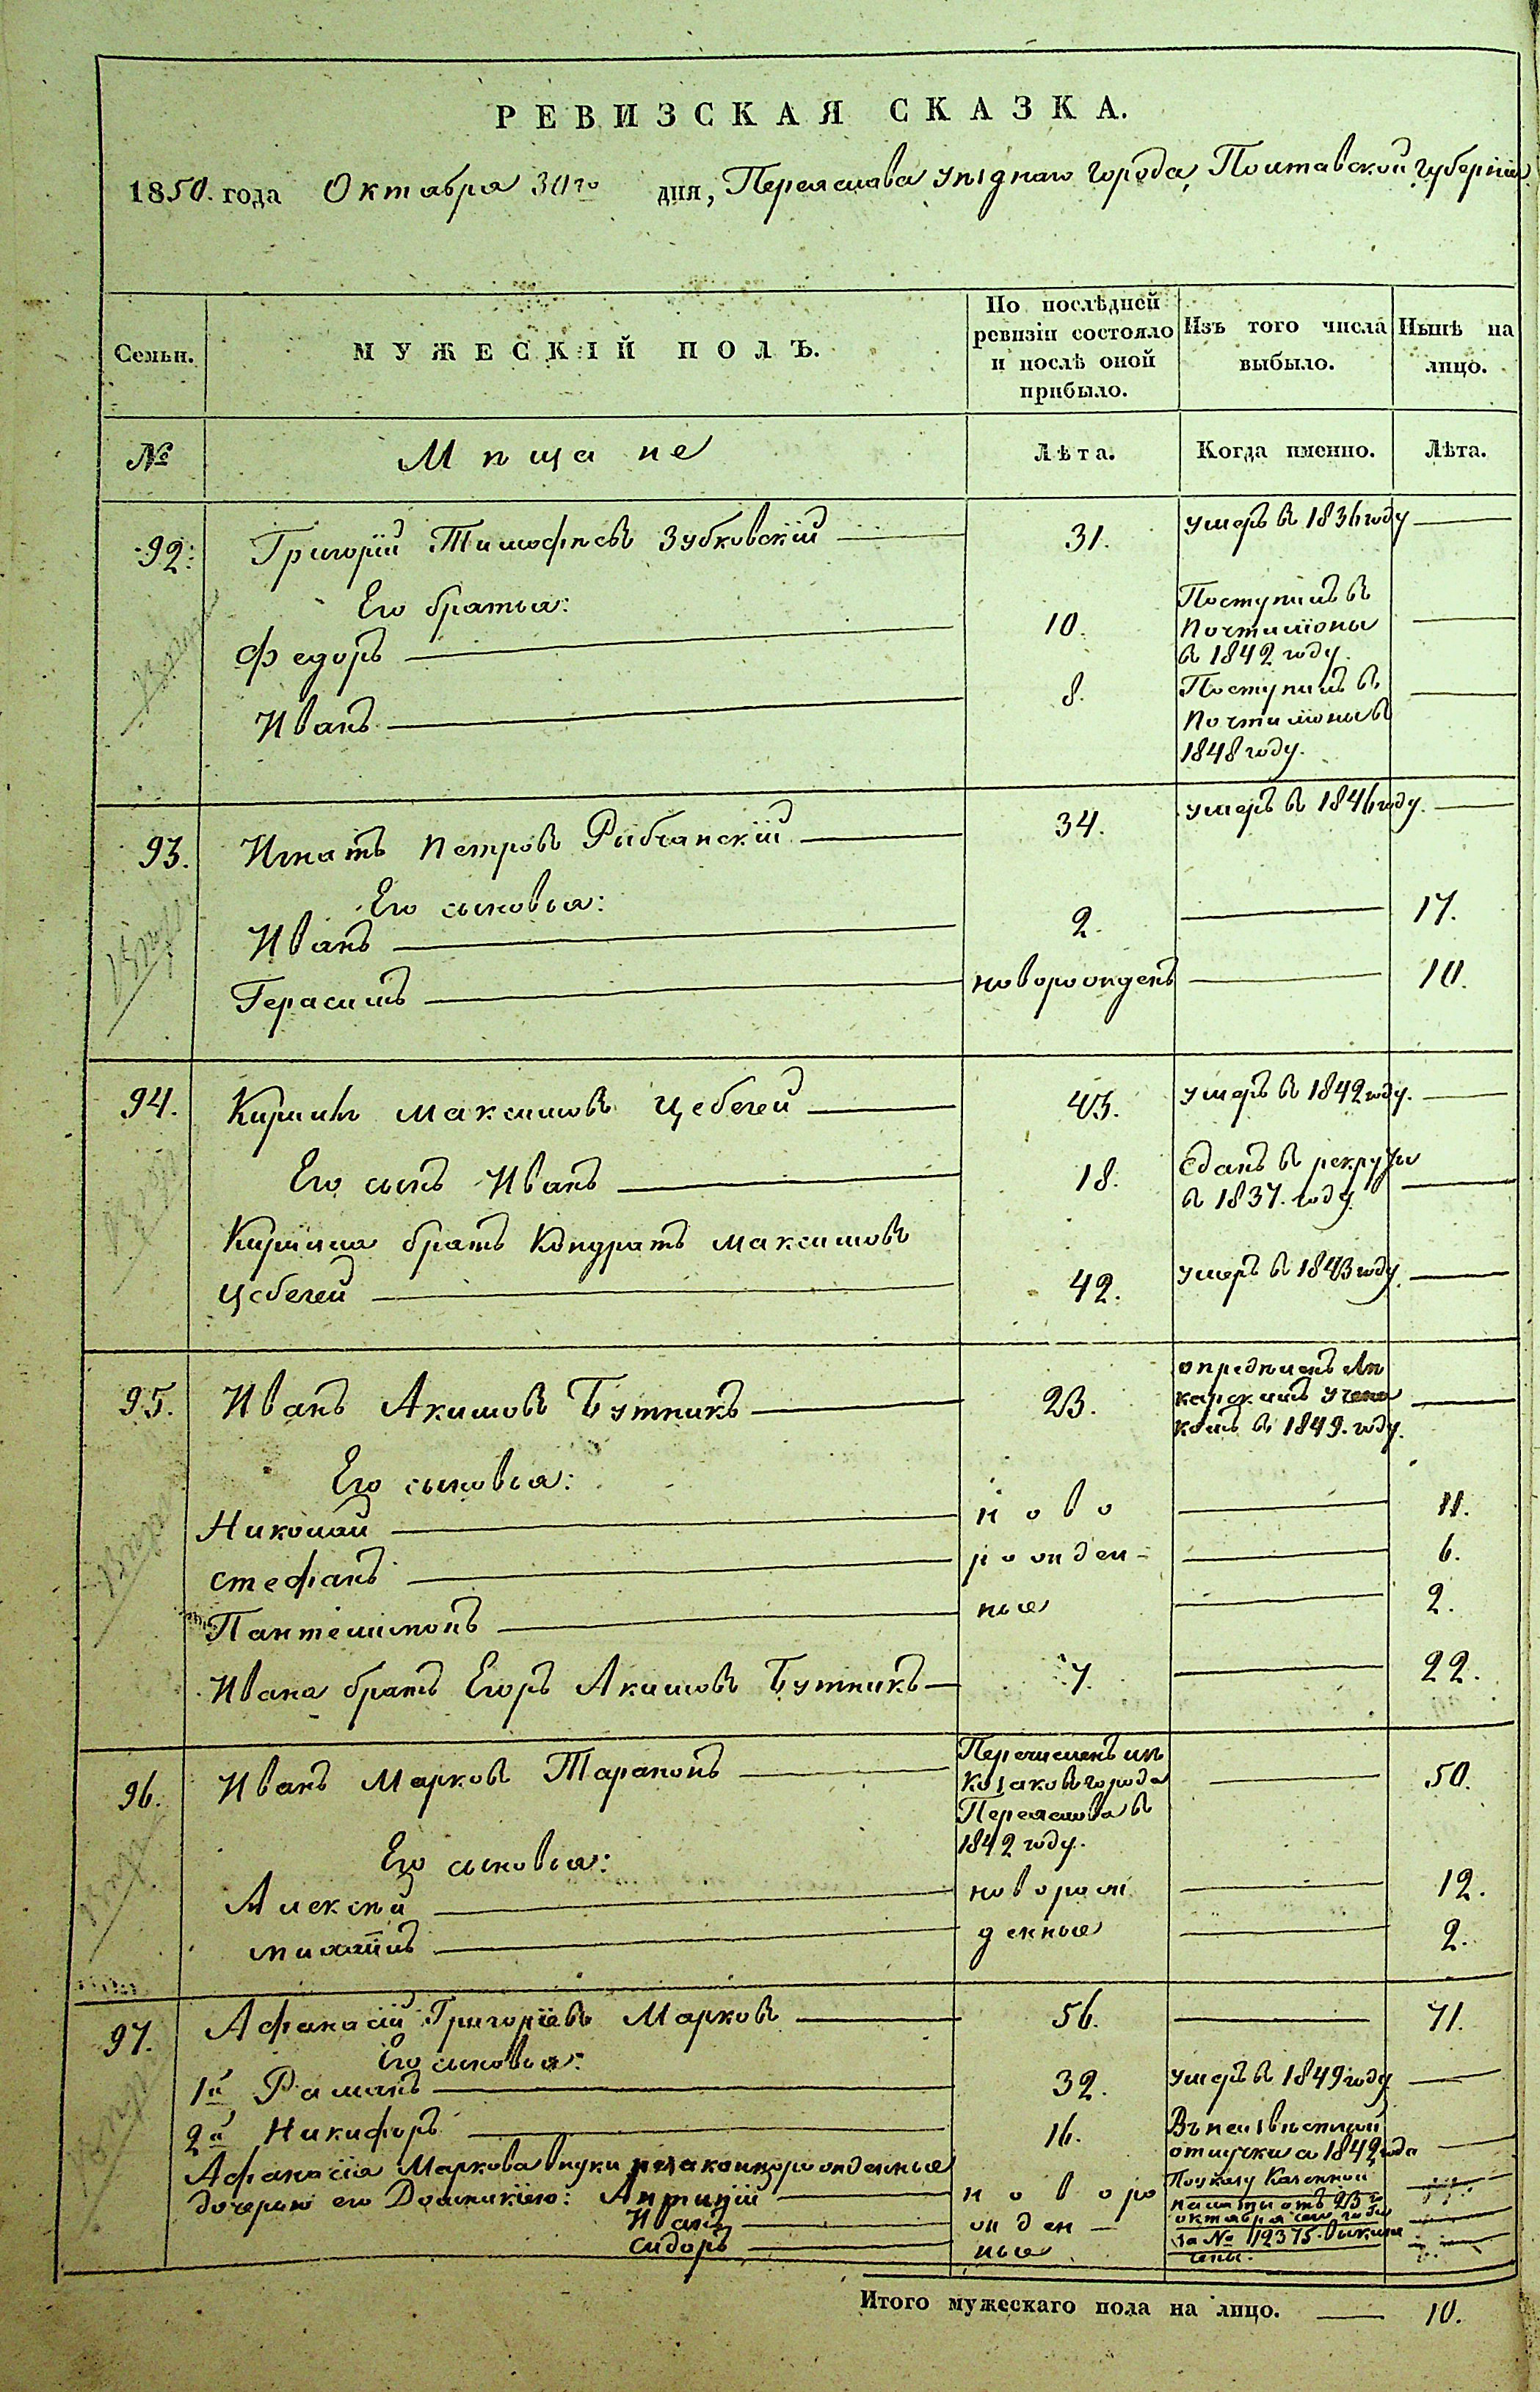 РЕВИЗСКАЯ СКАЗКА.
1850. года Октября 30го дня, Переяслава уѣзднаго города, Полтавской губерніи
Семьи.
МУЖЕСКІЙ ПОЛЪ.
По послѣдней ревизіи состояло и послѣ оной прибыло.
Изъ того числа выбыло.
Нынѣ на лицо.
№
Мѣщане
Лѣта.
Когда именно.
Лѣта.
92. Григорій Тимофѣевъ Зубковскій 31. умеръ в 1836 году
Его братья:
Федоръ 10. Поступилъ в почтиліоны в 1842 году
Иванъ 8. Поступилъ в почтиліоны в 1848 году.
93. Игнатъ Петровъ Рибчанскій 34. умеръ в 1846 году.
Его сыновья:
Иванъ 2. 17.
Герасимъ новорожденъ 10.
94. Кирилъ Максимовъ Цебегей 43. умеръ в 1842 году.
Его сынъ Иванъ 18. Сданъ в рекруты в 1837. году
Кирилла братъ Кондратъ Максимовъ
Цебегей 42. умеръ в 1843 году.
95. Иванъ Акимовъ Бутникъ 23. опредѣленъ лѣкарскимъ ученикомъ в 1849. году.
Его сыновья:
Николай ново 11.
Стефанъ рожден- 6.
Пантелимонъ ные 2.
Ивана братъ Егоръ Акимовъ Бутникъ 7. 22.
96. Иванъ Марковъ Тарапонъ Перечисленъ изъ козаковъ города Переяслова в 1842 году. 50.
Его сыновья:
Алексѣй новорож 12.
Михаилъ денные 2.
97. Афанасій Григоріевъ Марковъ 56. 71.
Его сыновья:
1й Романъ 32. умеръ в 1849 году
2й Никифоръ 16. Въ неизвѣстной отлучки с 1842 года
Афанасія Маркова внуки незаконнорожденные
дочерью его Домникіею: новоро По указу Казенной
Иванъ жден- палаты отъ 23го октября сего года
Сидоръ ные за № 12375. выключены.
Итого мужескаго пола на лицо. 10.